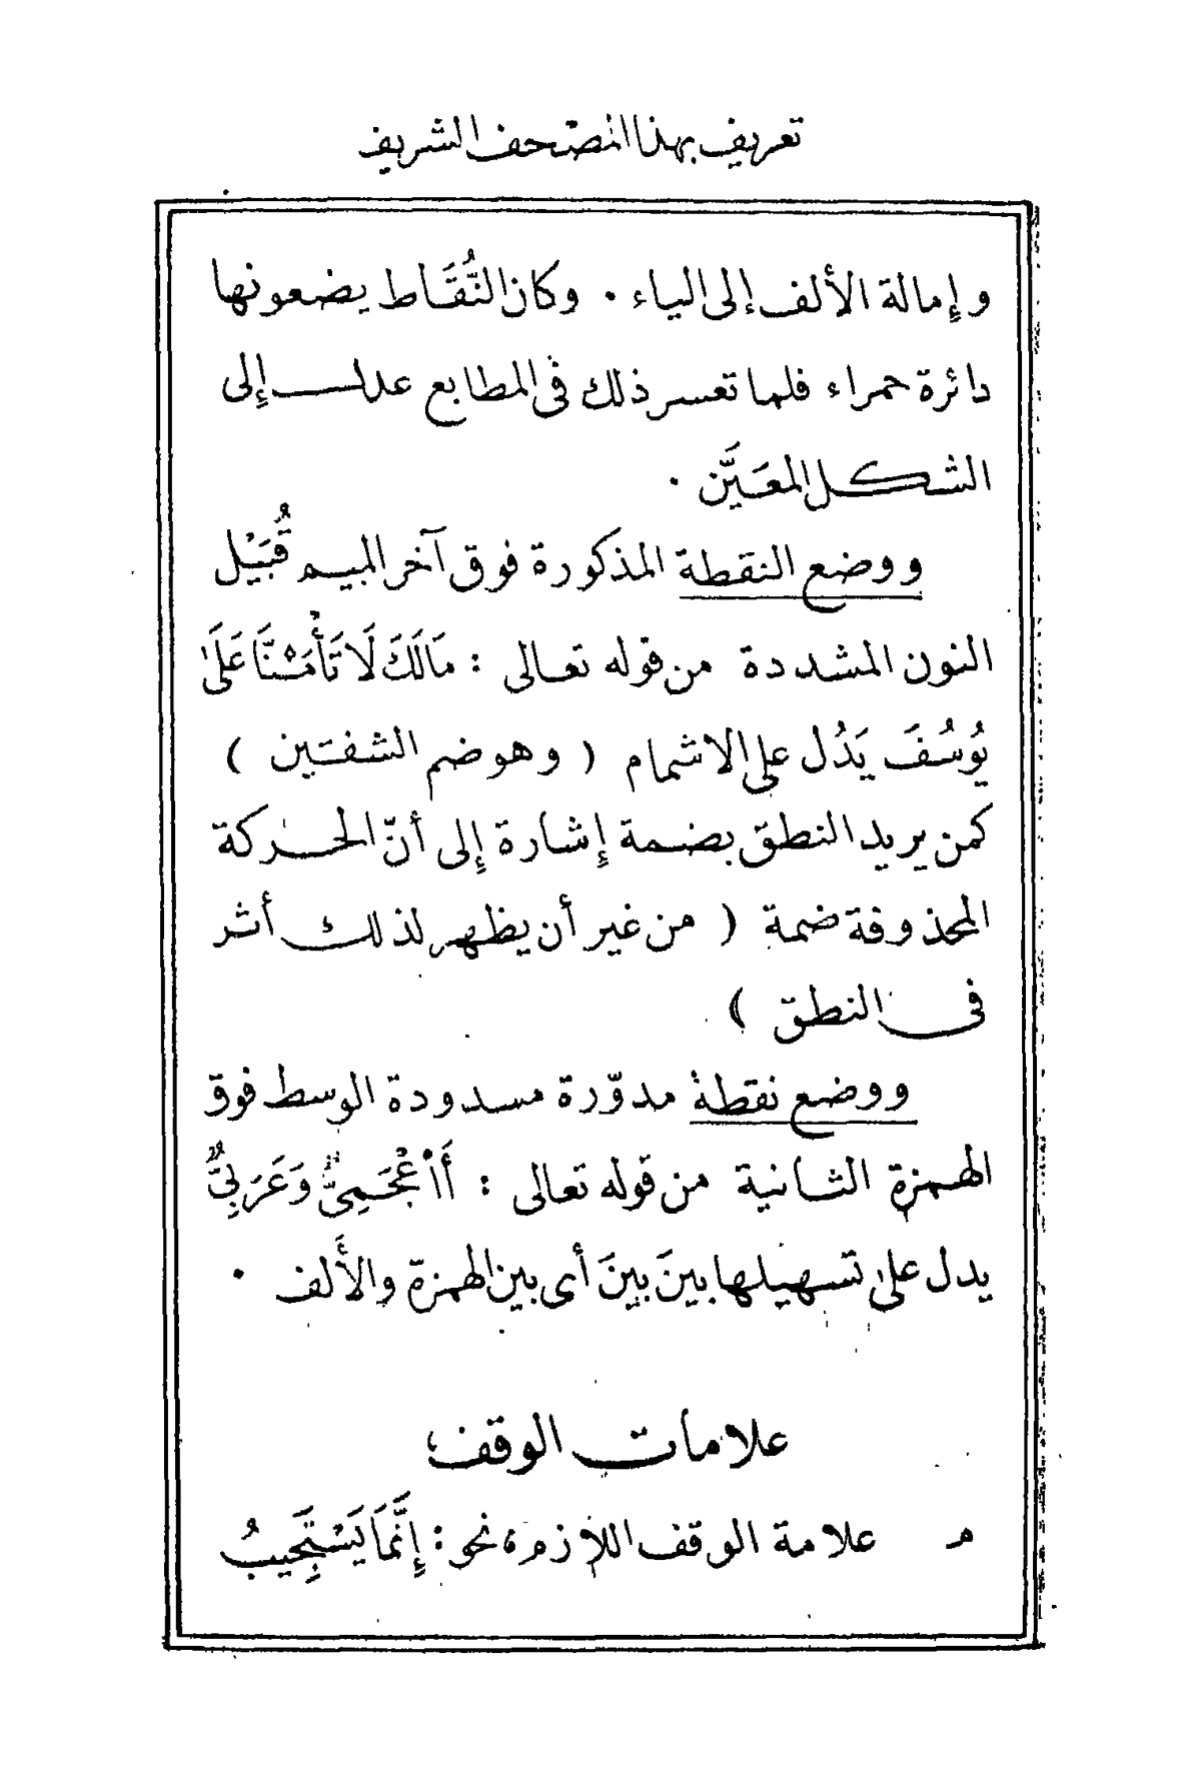 تعريف بهذا المصْحف الشريف
وإمالة الألف إلى الياء . وكان النُّقَاط يضعونها
دائرة حمراء فلما تعسر ذلك فى المطابع عدل إلى
الشكل المعَيَّن .
ووضع النقطة المذكورة فوق آخر الميم قُبَيْل
النون المشددة من قوله تعالى : مَالَكَ لَا تَأْمَ۫نَّا عَلَىٰ
يُوسُفَ يَدُل على الاشمام ( وهو ضم الشفتين )
كمن يريد النطق بضمة إشارة إلى أنّ الحركة
المحذوفة ضمة ( من غير أن يظهر لذلك أثر
فى النطق )
ووضع نقطة مدوّرة مسدودة الوسط فوق
الهمزة الثانية من قوله تعالى : ءَا۬عْجَمِىٌّ وَعَرَبِىٌّ
يدل على تسهيلها بينَ بينَ أى بين الهمزة والألف .
علامات الوقف
مـ علامة الوقف اللازم، نحو : إِنَّمَا يَسْتَجِيبُ